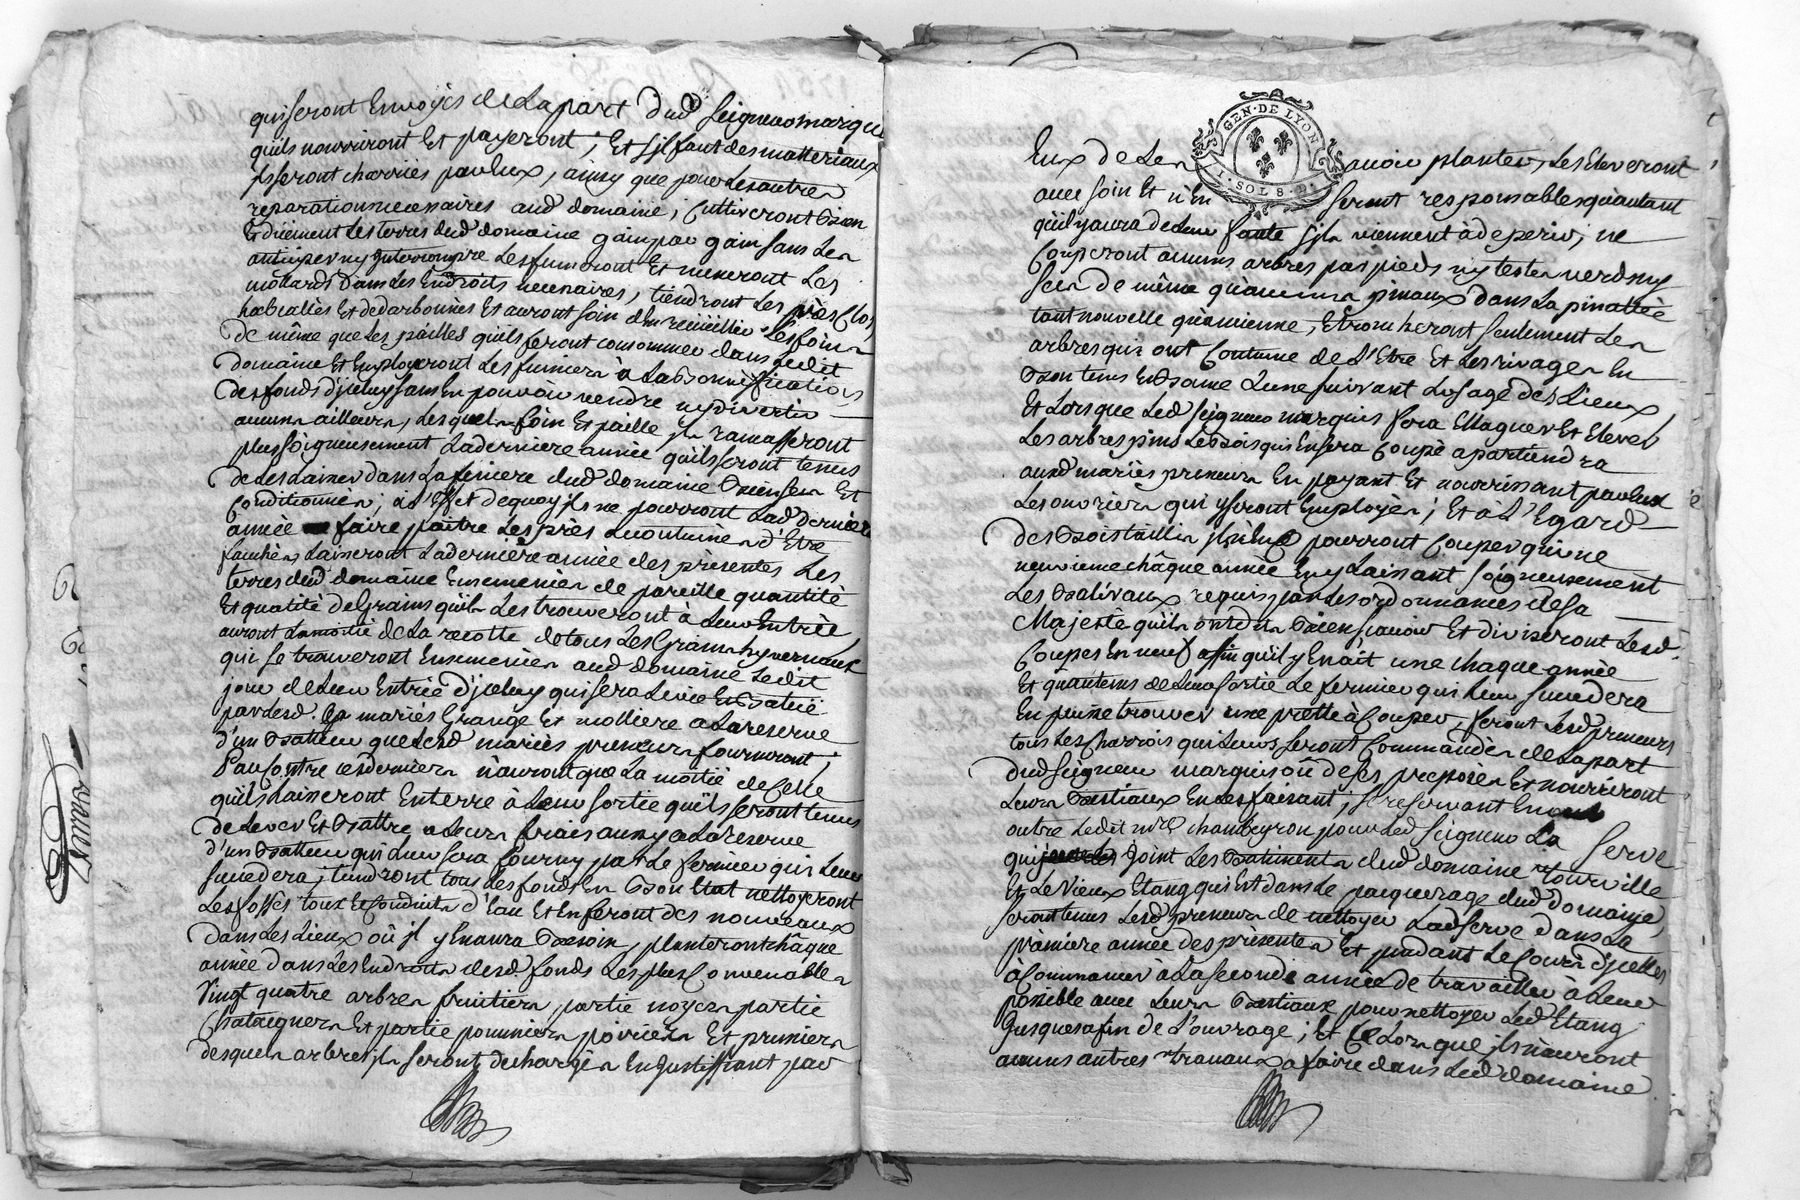 quiseront Envoyés de Lapart dud Seigneur marquis
quils nourriront Et payeront, Et sjl faut des matteriaux
jls seront charriés par Eux, ainsy que pour Les autres
reparations necessaires aud domaine, Cultiveront Bien
Et düement Les terres dud domaine gain par gain sans Les
antisiper ny Jnterrompre Les fumeront Et meneront Les
mottards dans Les Endroits necessaires, tiendront Les près Clos,
Et dedarbonnès Et auront soin d'En recüeillir Les foins
de même que Les pailles quils feront consommer dans Ledit
domaine Et Employeront Les fumiers à La Bonnification
des fonds d'jceluy sans En pouvoir vendre ny divertir
aucuns ailleurs, Lesquels foin Et paille jls ramasseront
plus soigneusement La derniere année quils seront tenus
de Les Laisser dans La feniere dud domaine Bien sers Et
Conditionnes; à L'Effet dequoy jls ne pourront Lad derniere
année faire paître Les près accoutumés d'Etre
fauchés Laisseront La derniere année des présentes Les
terres dud domaine Ensemencées de pareille quantité
Et qualité de Grains quils Les trouveront à Leur Entrée,
auront La moitié de La recolte de tous Les Grains hyvernaux
qui se trouveront Ensemencés aud domaine Ledit
jour de Leur Entrée d'jceluy qui sera Levée Et Batüe
par Lesd. mariés Grange Et mollière a La reserve
d'un Batteur que Lesd mariés preneurs fourniront;
Paucontre ces derniers n'auront que La moitié de Celle
quils Laisseront En terre à Leur sortie quils seront tenus
de Lever Et Battre a Leurs frais aussy a La reserve
d'un Batteur qui Leur sera fourny par Le fermier qui Leur
succedera, tiendront tous Les fonds En Bon Etat nettoyeront
Les fossés toux Et Conduits d'Eau Et En feront des nouveaux
dans Les Lieux où jl y En aura Besoin, planteront châque
année dans Les Endroits desd fonds Les plus Convenables
Vingt quatre arbres fruitiers partie noyers partie
Chataigners Et partie pommiers poiriers Et pruniers
desquels arbres jls seront dechargés En Justiffiant par
GEN·DE LYON
1·SOL 8·D·
Eux de Les avoir plantés, Les Eleveront
avec soin Et n'En seront responsables qu'autant
qu'il y aura de Leur faute sjls viennent à deperir; ne
Couperont aucuns arbres par pieds ny testes verds ny
secs de même qu'aucuns pinaux dans La pinattée
tant nouvelle qu'ancienne, Etroncheront seulement Les
arbres qui ont Coutume de L'Etre Et Les rivages En
Bon tems Et Bonne Lune suivant L'usage des Lieux,
Et Lorsque Led Seigneur marquis fera Ellaguer Et Elever
Les arbres pins Les Bois qui En sera Coupé apartiendra
aux mariés preneurs En payant Et nourrissant par Eux
Les ouvriers qui y seront Employés; Et à L'Egard
des Bois taillis jls n'En pourront Couper qu'une
neuvieme châque année En y Laissant soigneusement
Les Balivaux requis par Les ordonnances de Sa
Majesté quils ont dit Bien sçavoir Et diviseront Lesd.
Coupes En neuf affin qu'il y En ait une chaque année
Et qu'au tems de Leur sortie Le fermier qui Leur succedera
En puisse trouver une prette à Couper, feront Lesd preneurs
tous Les Charrois qui Leurs seront Commandés de La part
dud Seigneur marquis où de ses preposés Et nourriront
Leurs Bestiaux En Les faisant; se reservant En
outre Ledit mre Chambeyron pour Led Seigneur La Serve
qui Joint Les Batiments dud domaine tourville
Et Le Vieux Etang qui Est dans Le pacquerage dud domaine,
seront tenus Lesd preneurs de nettoyer Lad Serve dans La
prèmiere année des présentes Et pendant Le Cours d'jcelles
à Commancer à La seconde année de travailler à Leur
possible avec Leurs Bestiaux pour nettoyer Led Etang
Jusques a fin de L'ouvrage; Et Lorsque jls n'auront
aucuns autres travaux a faire dans Led domaine